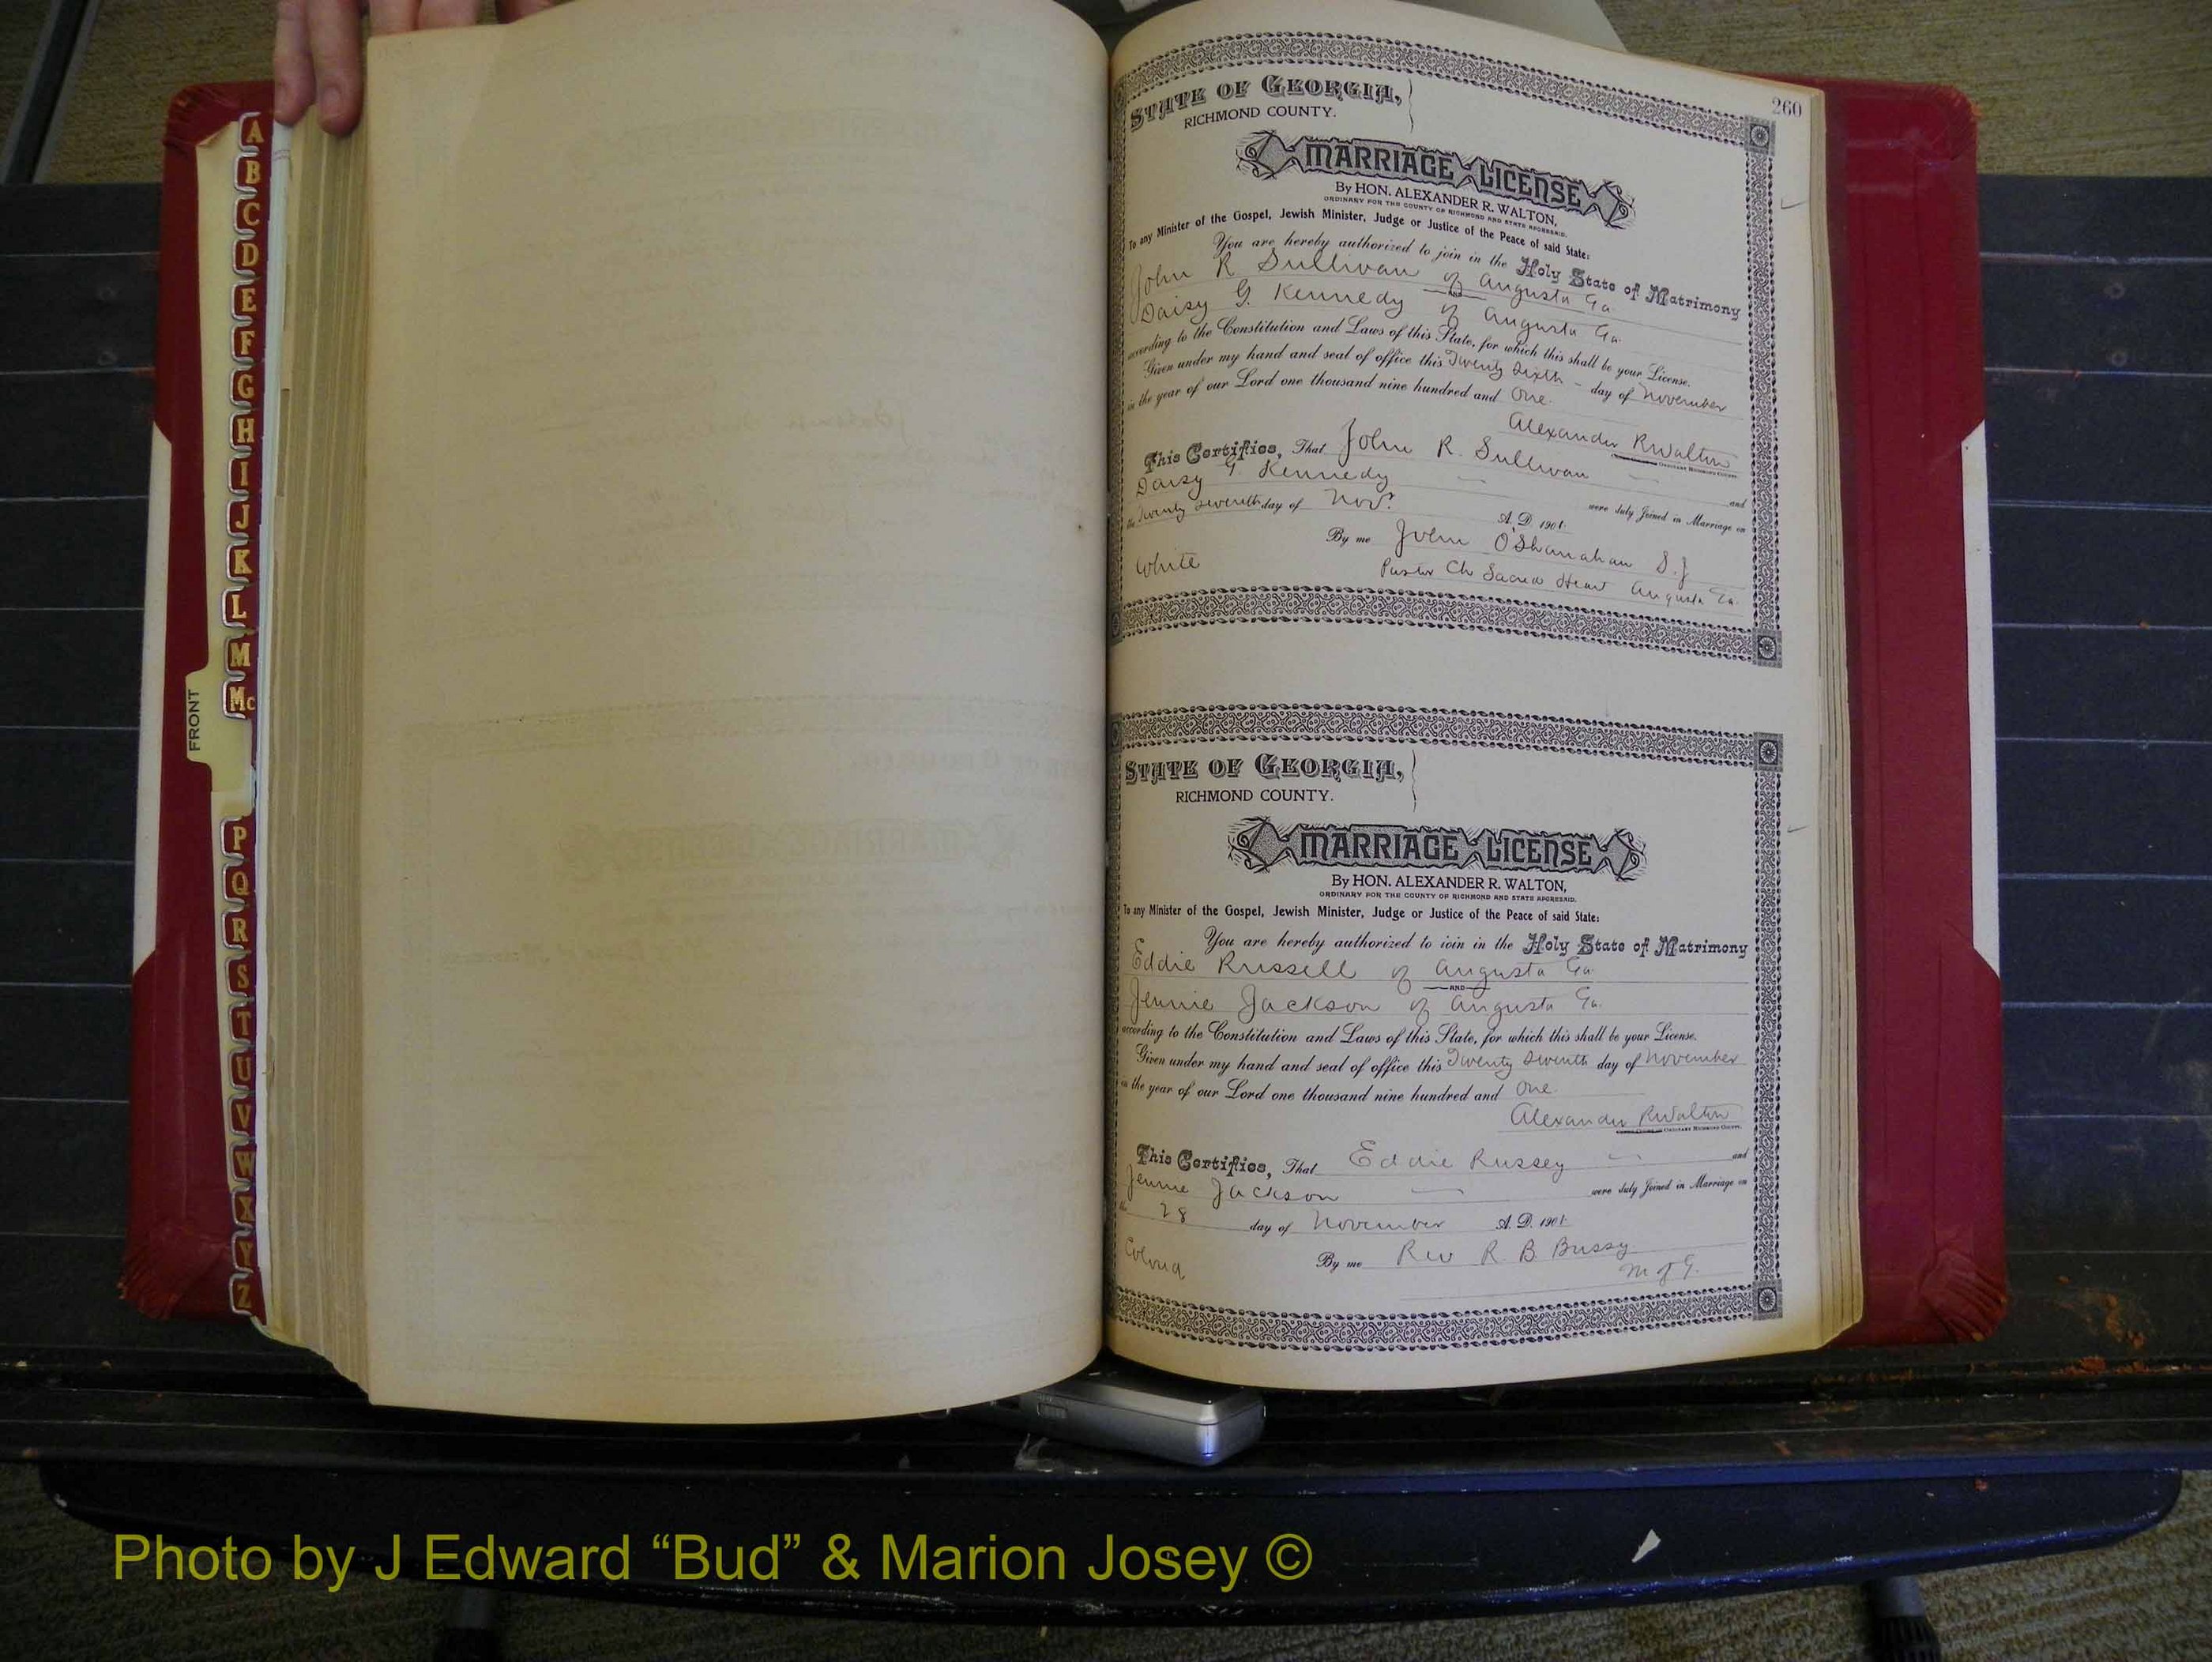 A
B
C
D
E
F
G
H
I
J
K
L
M
Mc
FRONT
P
Q
R
S
T
U
V
W
X
Y
Z
260
STATE OF GEORGIA,
RICHMOND COUNTY.
MARRIAGE LICENSE
By HON. ALEXANDER R. WALTON,
ORDINARY FOR THE COUNTY OF RICHMOND AND STATE AFORESAID.
To any Minister of the Gospel, Jewish Minister, Judge or Justice of the Peace of said State:
You are hereby authorized to join in the Holy State of Matrimony
John R Sullivan of Augusta Ga.
AND
Daisy G. Kennedy of Augusta Ga.
according to the Constitution and Laws of this State, for which this shall be your License.
Given under my hand and seal of office this Twenty Sixth - day of November
in the year of our Lord one thousand nine hundred and One.
Alexander R Walton
ORDINARY RICHMOND COUNTY.
This Certifies, That John R. Sullivan and
Daisy G Kennedy were duly Joined in Marriage on
the Twenty Seventh day of Nov. A. D. 1901.
By me John O'Shanahan S.J
White Pastor Ch Sacred Heart Augusta Ga.
STATE OF GEORGIA,
RICHMOND COUNTY.
MARRIAGE LICENSE
By HON. ALEXANDER R. WALTON,
ORDINARY FOR THE COUNTY OF RICHMOND AND STATE AFORESAID.
To any Minister of the Gospel, Jewish Minister, Judge or Justice of the Peace of said State:
You are hereby authorized to join in the Holy State of Matrimony
Eddie Russell of Augusta Ga.
AND
Jennie Jackson of Augusta Ga.
according to the Constitution and Laws of this State, for which this shall be your License.
Given under my hand and seal of office this Twenty Seventh day of November
in the year of our Lord one thousand nine hundred and One.
Alexander R Walton
ORDINARY RICHMOND COUNTY.
This Certifies, That Eddie Russey and
Jennie Jackson were duly Joined in Marriage on
the 28 day of November A. D. 1901.
Colored By me Rev R. B. Bussy
M of G.
Photo by J Edward “Bud” & Marion Josey ©